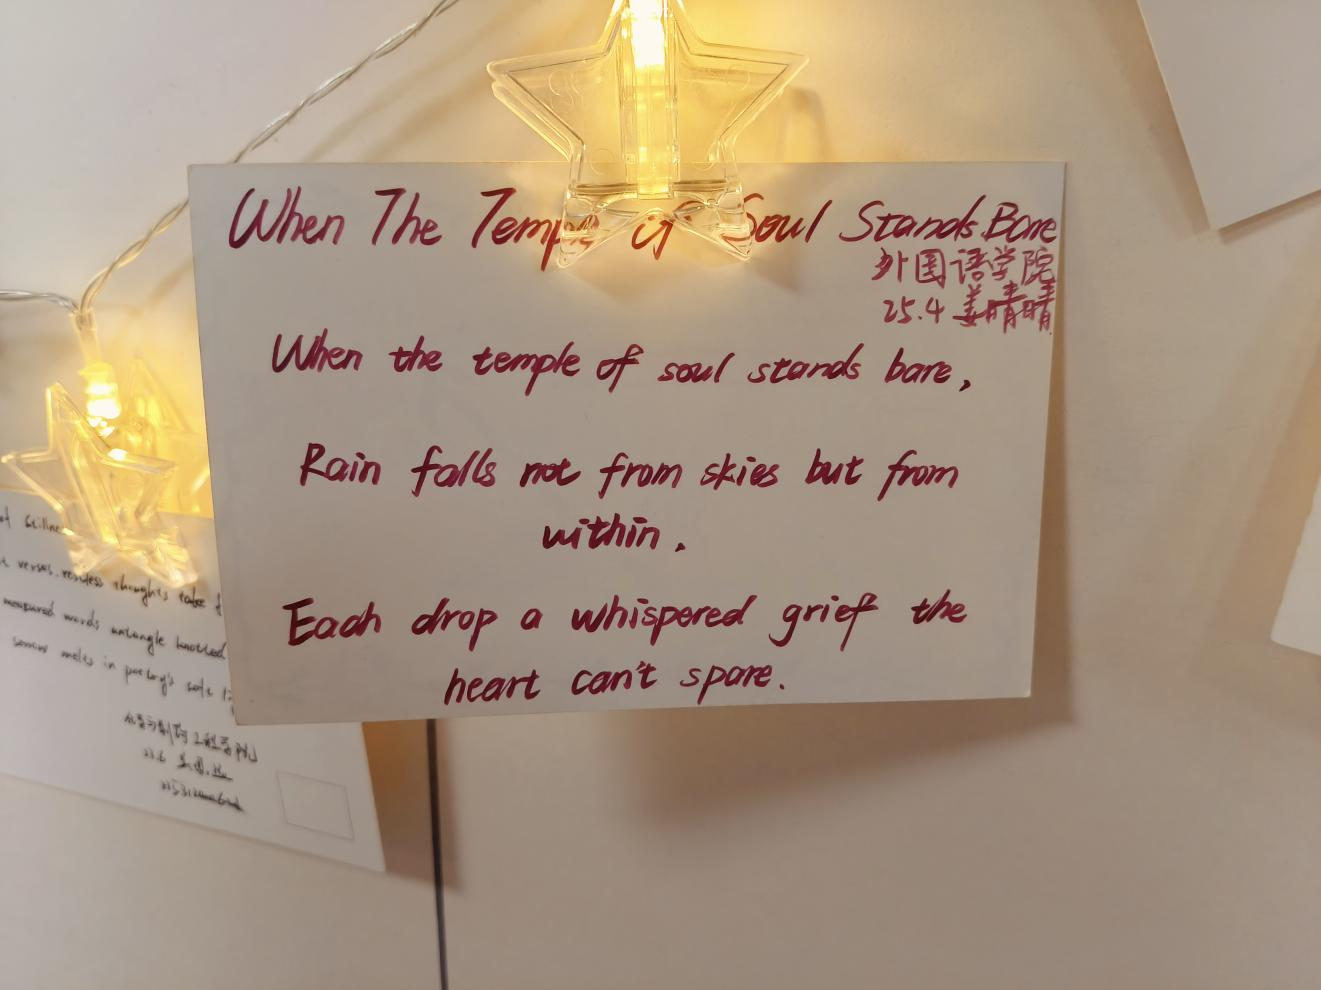 When The Temple of Soul Stands Bare
外国语学院
25.4 姜晴晴
When the temple of soul stands bare,
Rain falls not from skies but from
within.
Each drop a whispered grief the
heart can't spare.
verses, restless thoughts take
measured words untangle knotted
sorrow melts in poetry's soft